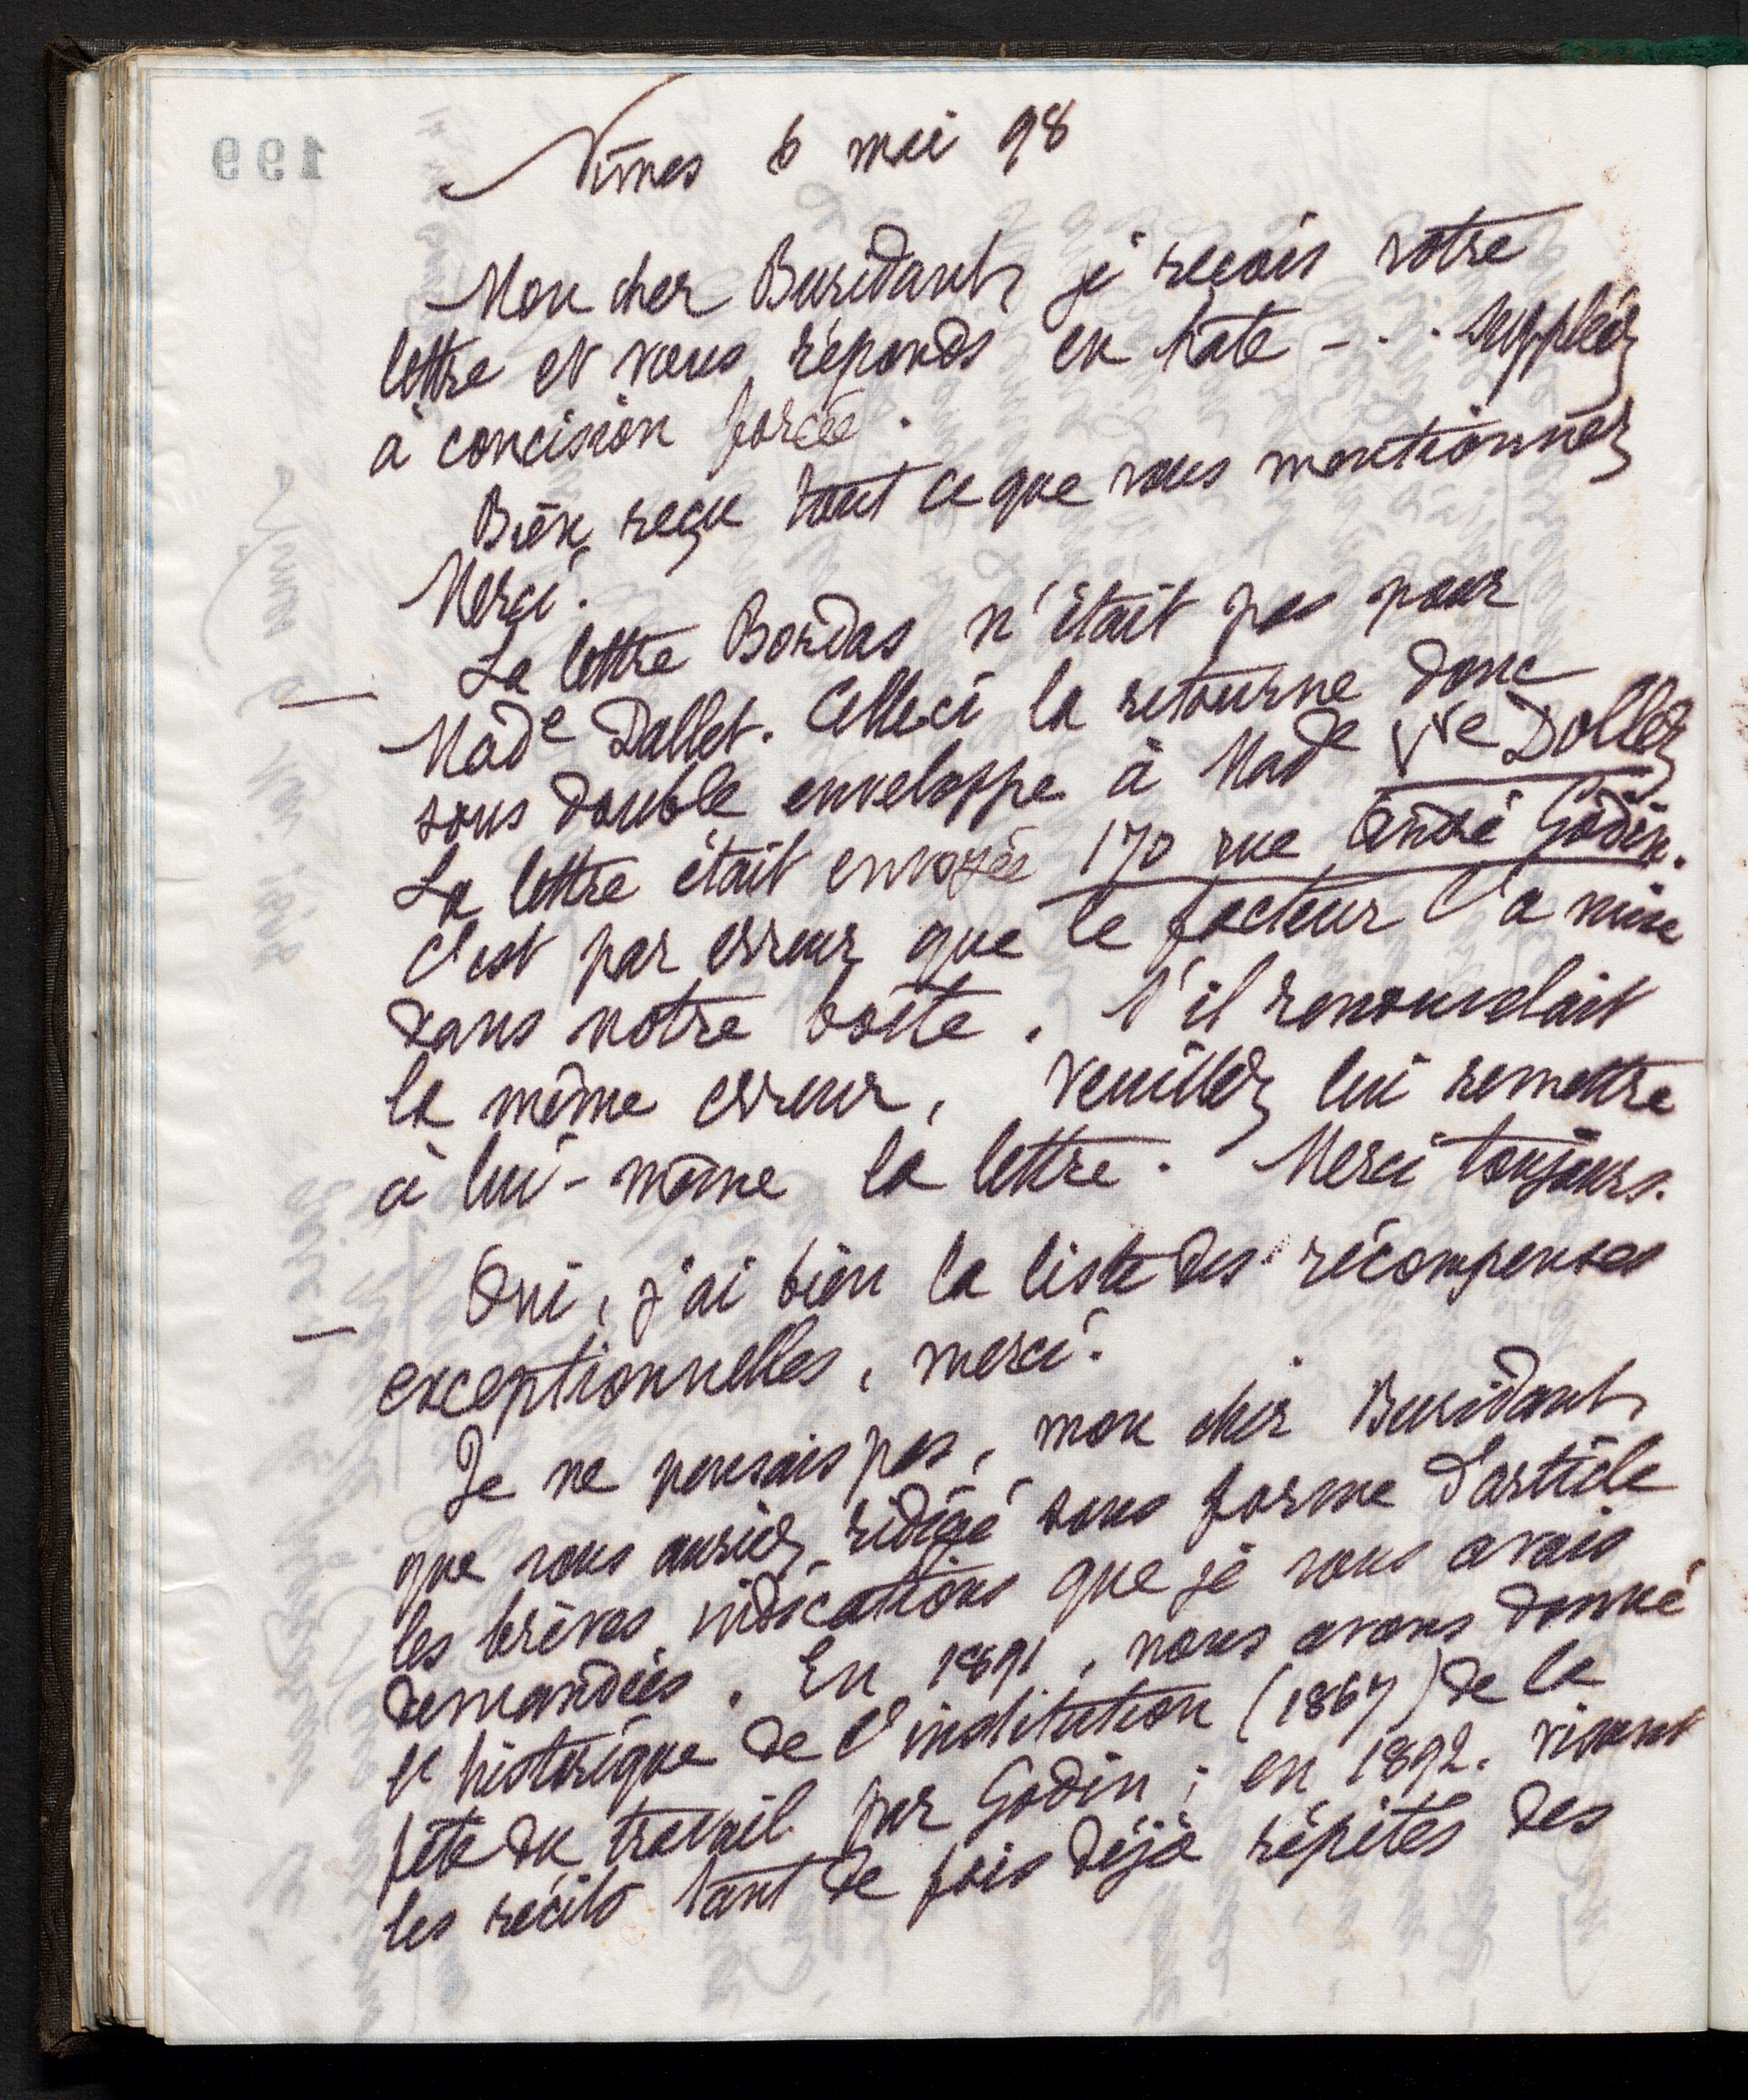 199
Nîmes 6 mai 98
Mon cher Buridant, je reçois votre
lettre et vous réponds en hâte - . . Suppléez
à concision forcée.
Bien reçu tout ce que vous mentionnez
Merci.
— La lettre Bordas n'était pas pour
Made Dallet. Celle-ci la retourne donc
sous double enveloppe à Made Vve Dollez
La lettre était envoyée 170 rue André Godin.
C'est par erreur que le facteur l'a mise
dans notre boîte. S'il renouvelait
la même erreur, veuillez lui remettre
à lui-même la lettre. Merci toujours.
— Oui, j'ai bien la liste des récompenses
exceptionnelles, merci.
Je ne pensais pas, mon cher Buridant,
que vous auriez rédigé sous forme d'article
les brèves indications que je vous avais
demandées. En 1891, nous avons donné
l'historique de l'institution (1867) de la
fête du travail par Godin ; en 1892. vinrent
les récits tant de fois déjà répétés des